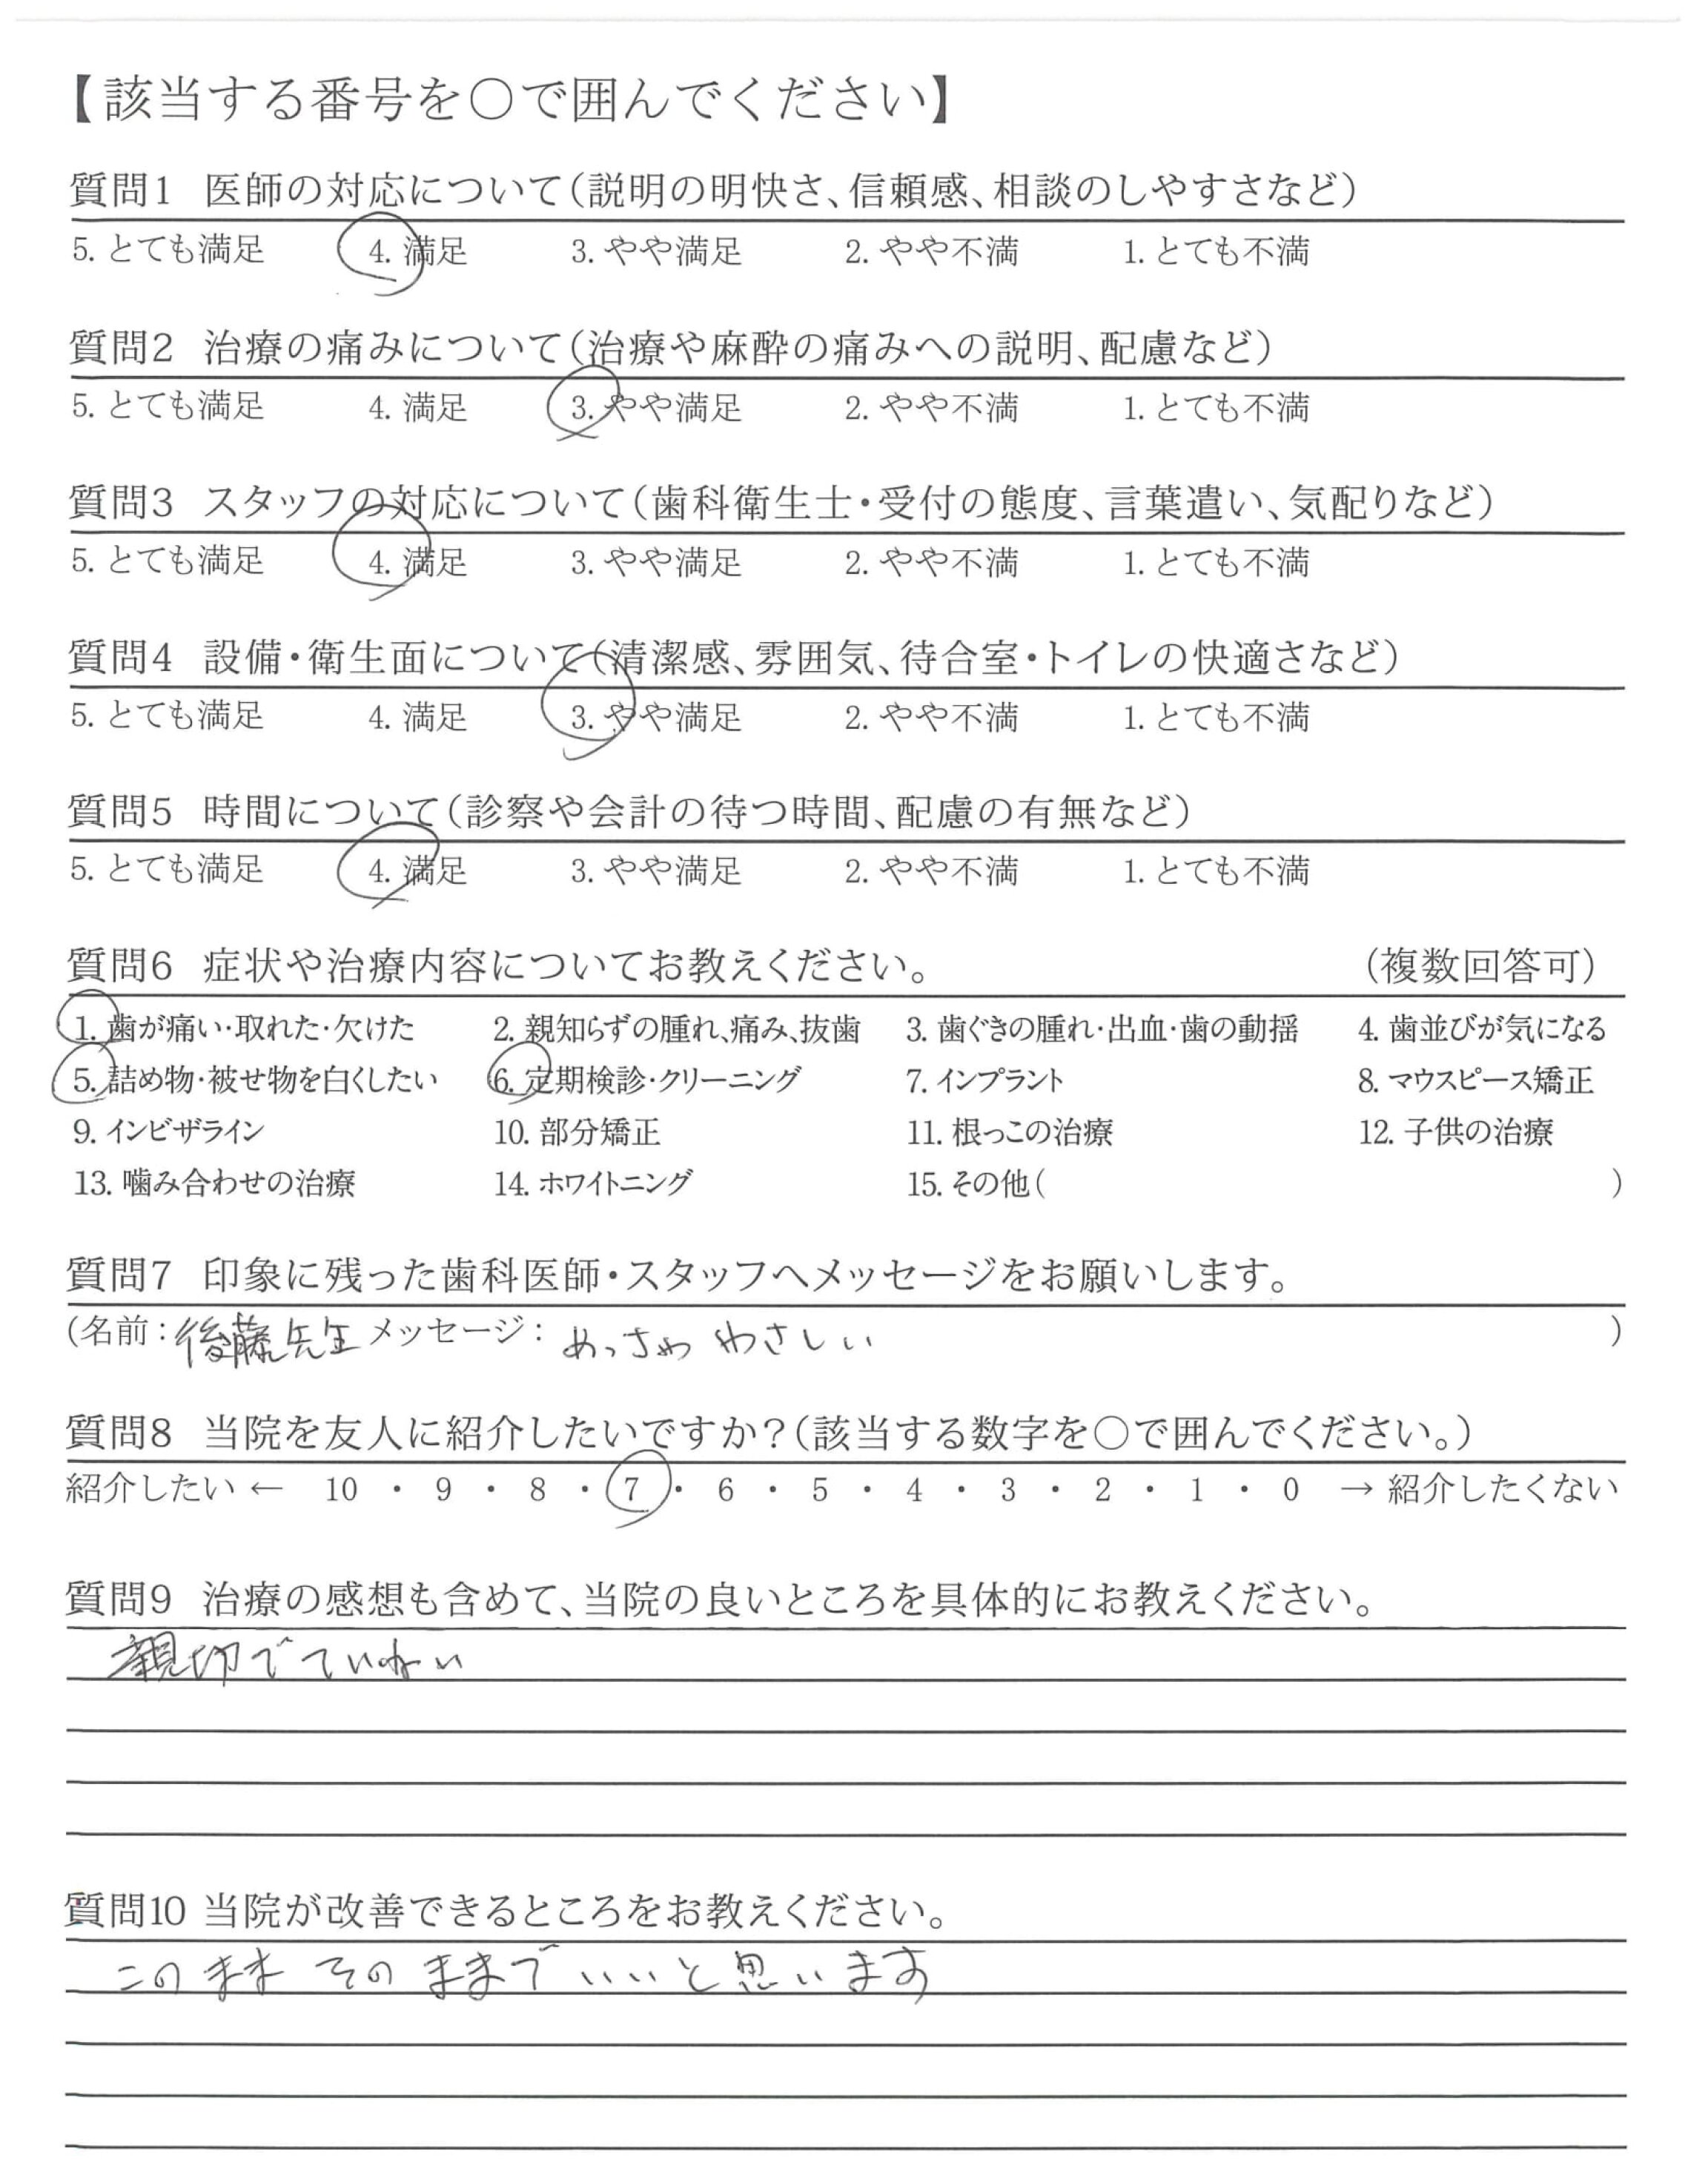 【該当する番号を〇で囲んでください】
質問1 医師の対応について(説明の明快さ、信頼感、相談のしやすさなど)
5. とても満足 4. 満足 3. やや満足 2. やや不満 1. とても不満
質問2 治療の痛みについて(治療や麻酔の痛みへの説明、配慮など)
5. とても満足 4. 満足 3. やや満足 2. やや不満 1. とても不満
質問3 スタッフの対応について(歯科衛生士・受付の態度、言葉遣い、気配りなど)
5. とても満足 4. 満足 3. やや満足 2. やや不満 1. とても不満
質問4 設備・衛生面について(清潔感、雰囲気、待合室・トイレの快適さなど)
5. とても満足 4. 満足 3. やや満足 2. やや不満 1. とても不満
質問5 時間について(診察や会計の待つ時間、配慮の有無など)
5. とても満足 4. 満足 3. やや満足 2. やや不満 1. とても不満
質問6 症状や治療内容についてお教えください。 (複数回答可)
1. 歯が痛い・取れた・欠けた 2. 親知らずの腫れ、痛み、抜歯 3. 歯ぐきの腫れ・出血・歯の動揺 4. 歯並びが気になる
5. 詰め物・被せ物を白くしたい 6. 定期検診・クリーニング 7. インプラント 8. マウスピース矯正
9. インビザライン 10. 部分矯正 11. 根っこの治療 12. 子供の治療
13. 噛み合わせの治療 14. ホワイトニング 15. その他( )
質問7 印象に残った歯科医師・スタッフへメッセージをお願いします。
(名前:後藤先生 メッセージ: めっちゃ やさしい )
質問8 当院を友人に紹介したいですか?(該当する数字を〇で囲んでください。)
紹介したい ← 10 ・ 9 ・ 8 ・ 7 ・ 6 ・ 5 ・ 4 ・ 3 ・ 2 ・ 1 ・ 0 → 紹介したくない
質問9 治療の感想も含めて、当院の良いところを具体的にお教えください。
親切でていねい
質問10 当院が改善できるところをお教えください。
このまま そのままで いいと思います